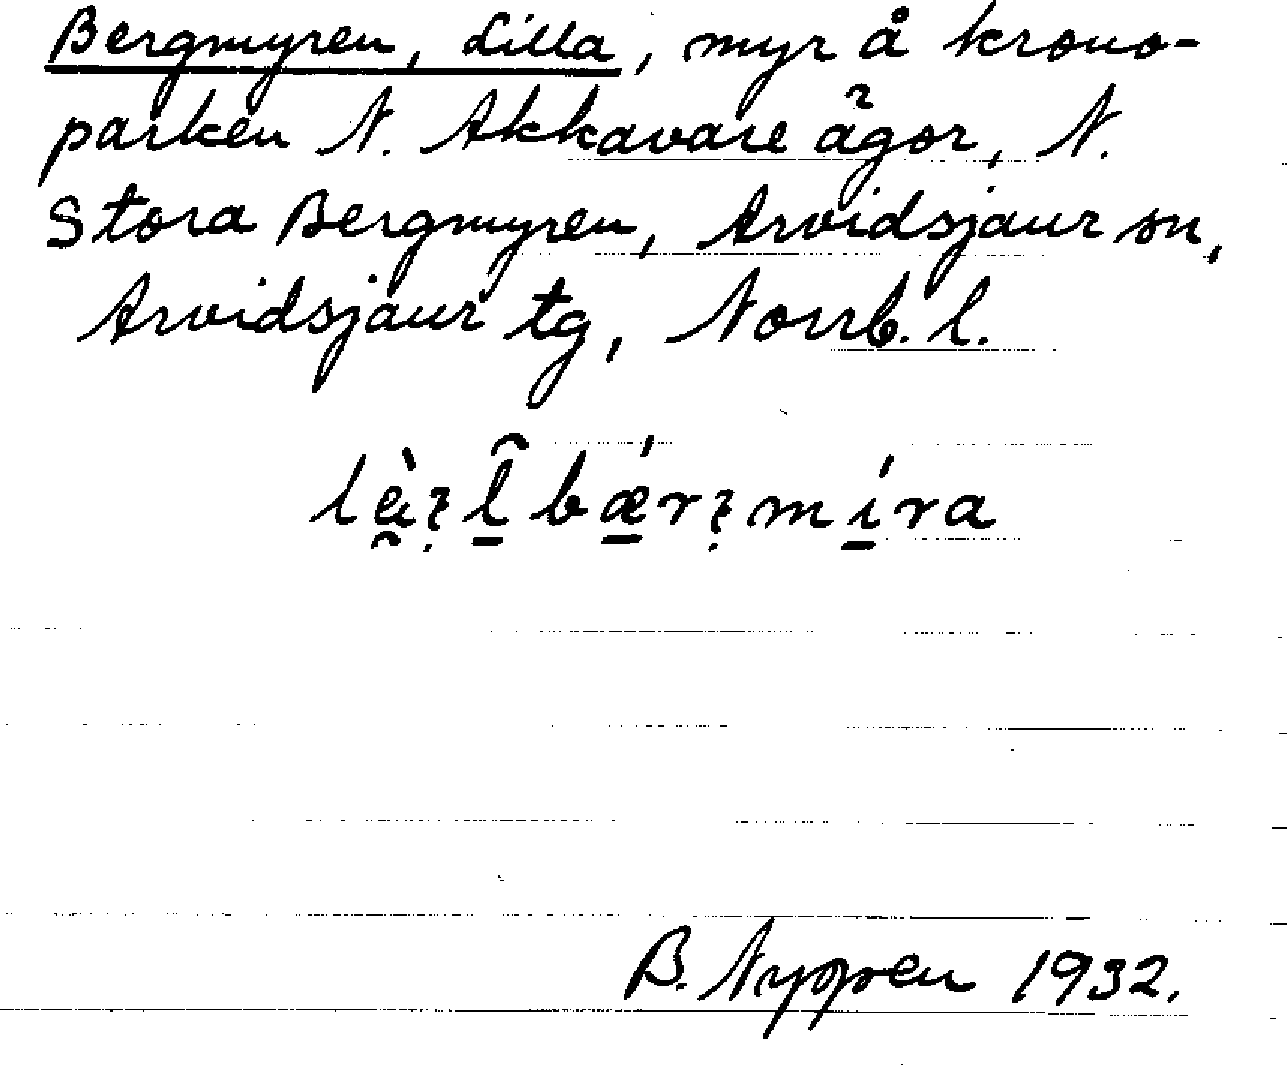 Bergmyren, Lilla, myr å krono-
parken N. Akkavare ägor, N.
Stora Bergmyren, Arvidsjaur sn,
Arvidsjaur tg, Norrb. l.
B. Nygren 1932.